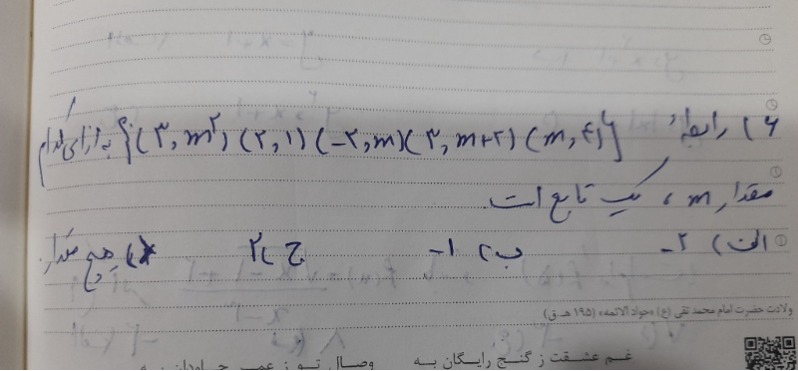 ۶) رابطه {(۳, m²) (۲, ۱) (-۲, m) (۳, m+۲) (m, ۴)} به ازای کدام
مقدار m، یک تابع است.
الف) -۲ ب) -۱ ج) ۲ د) هیچ مقدار
ولادت حضرت امام محمد تقی (ع) «جواد الائمه» (۱۹۵ هـ.ق)
غم عشقت ز گنج رایگان به وصال تو ز عمر جاودان به